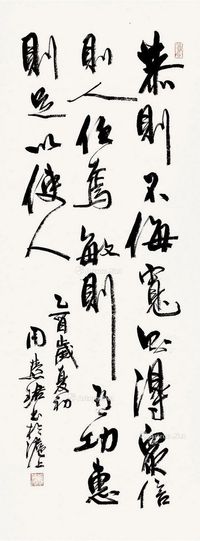 恭則不侮寬則得眾信
則人任焉敏則有功惠
則足以使人
乙酉歲夏初
周慧珺书於滬上